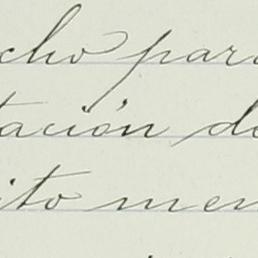 cho para
tación de
ito men